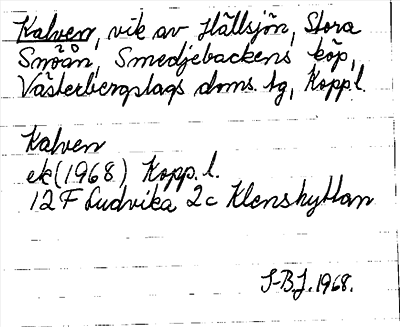 Kalven, vik av Hällsjön, Stora
Snöån, Smedjebackens köp,
Västerbergslags doms. tg, Kopp.l.
Kalven
ek (1968) Kopp. l.
12 F Ludvika 2c Klenshyttan
S-BJ. 1968.